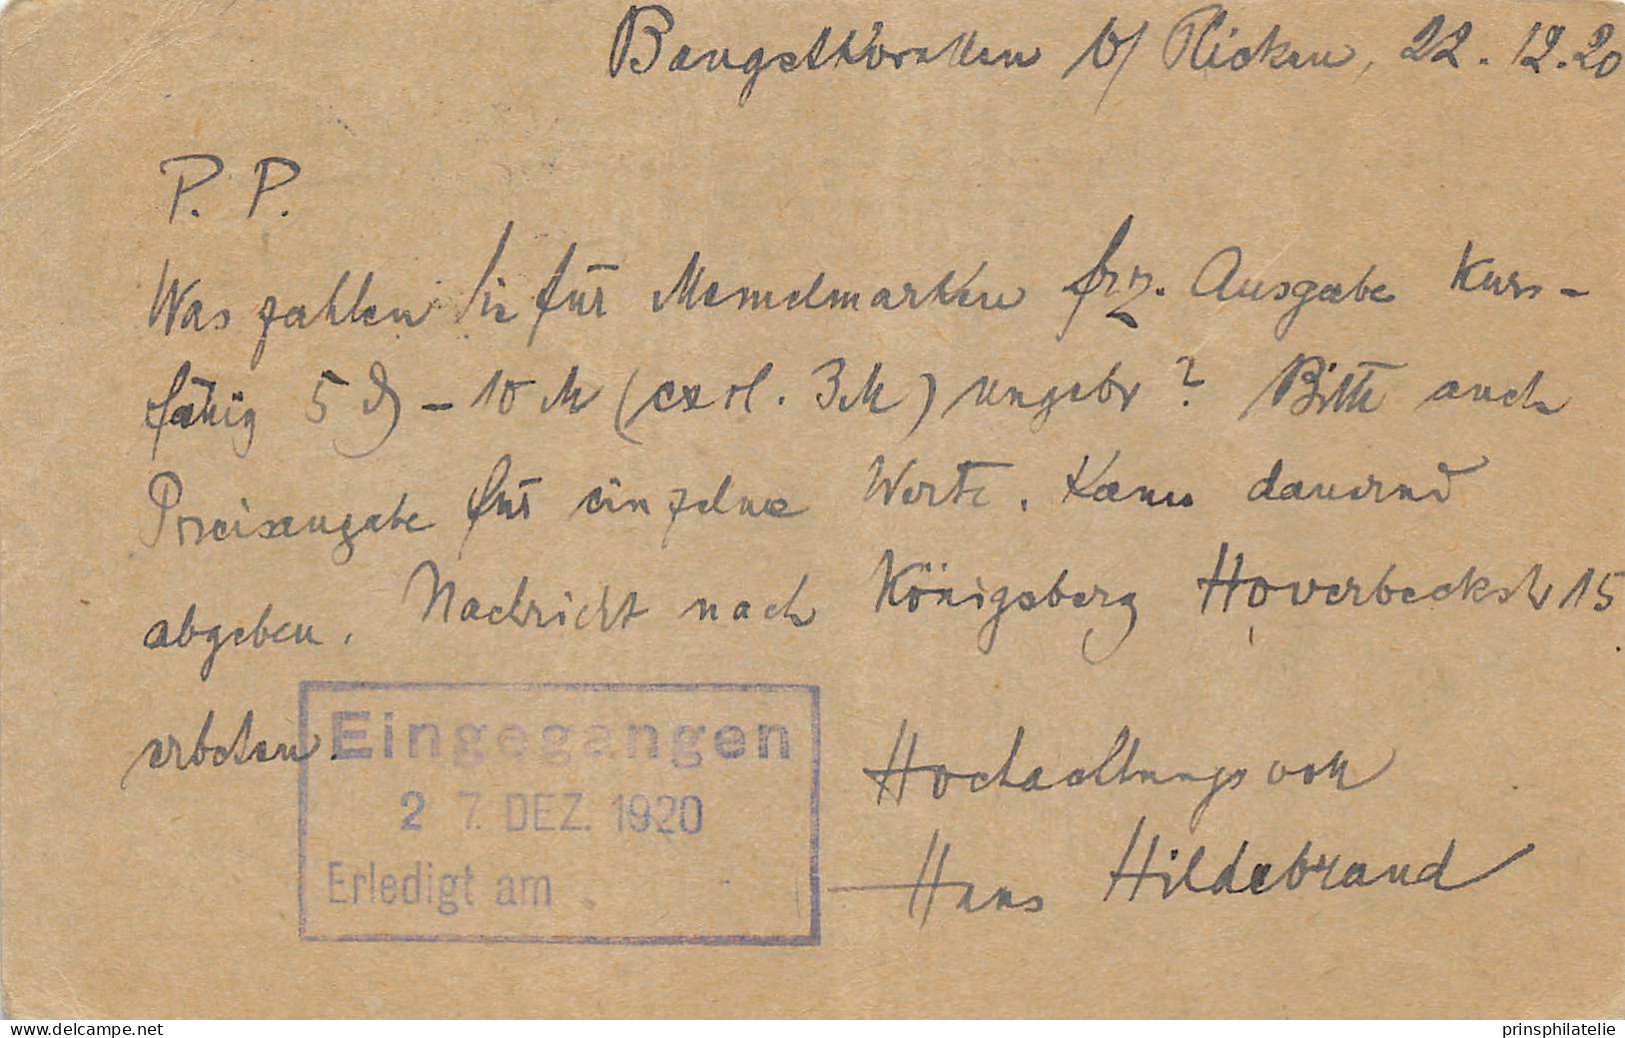 Baugstkorallen b/ Plicken, 22.12.20
P. P.
Was zahlen Sie für Memelmarken frz. Ausgabe kurs-
fähig 5 ₰ - 10 M (exkl. 3M) ungebr? Bitte auch
Preisangabe für einzelne Werte. Kann dauernd
abgeben. Nachricht nach Königsberg Hoverbeckstr 15
erbeten.
Eingegangen
2 7. DEZ. 1920
Erledigt am
Hochachtungsvoll
Hans Hildebrand
www.delcampe.net
prinsphilatelie